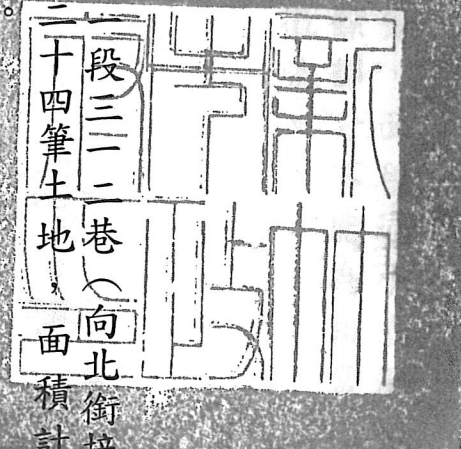 一段三一二巷（向北銜接
二十四筆土地，面積計
。